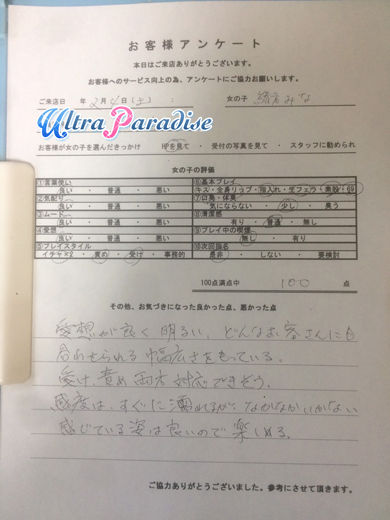 お客様アンケート
本日はご来店ありがとうございます。
お客様へのサービス向上の為、アンケートにご協力お願いします。
ご来店日 年 2月4日(土) : 女の子 緒方みな
Ultra Paradise
お客様が女の子を選んだきっかけ HPを見て ・ 受付の写真を見て ・ スタッフに勧められ
女の子の評価
①言葉使い
良い ・ 普通 ・ 悪い
②気配り
良い ・ 普通 ・ 悪い
③ムード
良い ・ 普通 ・ 悪い
④愛想
良い ・ 普通 ・ 悪い
⑤プレイスタイル
イチャ×2 ・ 責め ・ 受け ・ 事務的
⑥基本プレイ
キス・全身リップ・指入れ・生フェラ・素股・69
⑦口臭・体臭
気にならない ・ 少し ・ 臭う
⑧清潔感
有り ・ 普通 ・ 無し
⑨プレイ中の喫煙
無し ・ 有り
⑩次回指名
是非 ・ しない ・ 要検討
100点満点中 100 点
その他、お気づきになった良かった点、悪かった点
愛想が良く明るい、どんなお客さんにも
合わせられる幅広さをもっている。
受け、責め両方対応できそう。
感度は、すぐに濡れるが、なかなかいかない
感じている姿は良いので楽しめる。
ご協力ありがとうございました。参考にさせて頂きます。